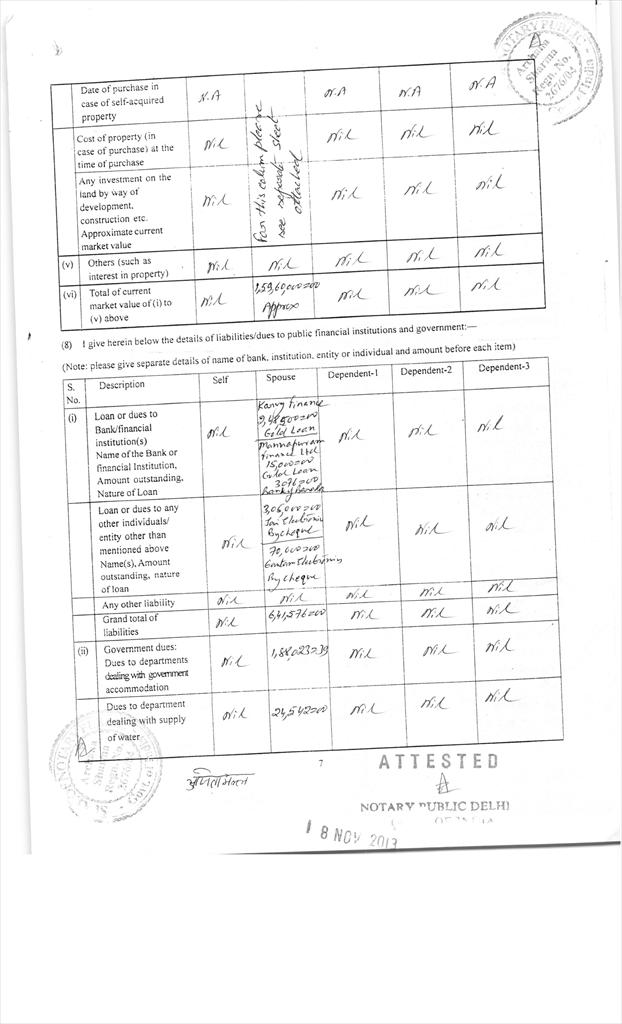 NOTARY PUBLIC
Archana
Sharma
Regn. No.
2676/04
Date of purchase in case of self-acquired property N.A N.A N.A N.A
For this column please see seperate sheet attached
Cost of property (in case of purchase) at the time of purchase Nil Nil Nil Nil
Any investment on the land by way of development, construction etc. Approximate current market value Nil Nil Nil Nil
(v) Others (such as interest in property) Nil Nil Nil Nil Nil
(vi) Total of current market value of (i) to (v) above Nil 1,59,60,000=00 Approx Nil Nil Nil
(8) I give herein below the details of liabilities/dues to public financial institutions and government:—
(Note: please give separate details of name of bank, institution, entity or individual and amount before each item)
S. No. Description Self Spouse Dependent-1 Dependent-2 Dependent-3
(i) Loan or dues to Bank/financial institution(s) Name of the Bank or financial Institution, Amount outstanding, Nature of Loan Nil
Finance
2,48,500=00
Gold Loan
Mannapuram
Finance Ltd
15,000=00
Gold Loan
3076=00
Nil Nil Nil
Loan or dues to any other individuals/ entity other than mentioned above Name(s), Amount outstanding, nature of loan Nil
3,05,000=00
Electronic
By cheque
70,000=00
Gautam Electronics
By cheque
Nil Nil Nil
Any other liability Nil Nil Nil Nil Nil
Grand total of liabilities Nil 6,41,576=00 Nil Nil Nil
(ii) Government dues: Dues to departments dealing with government accommodation Nil 1,88,023=39 Nil Nil Nil
Dues to department dealing with supply of water Nil 24,542=00 Nil Nil Nil
7
ATTESTED
NOTARY PUBLIC DELHI
18 NOV 2013